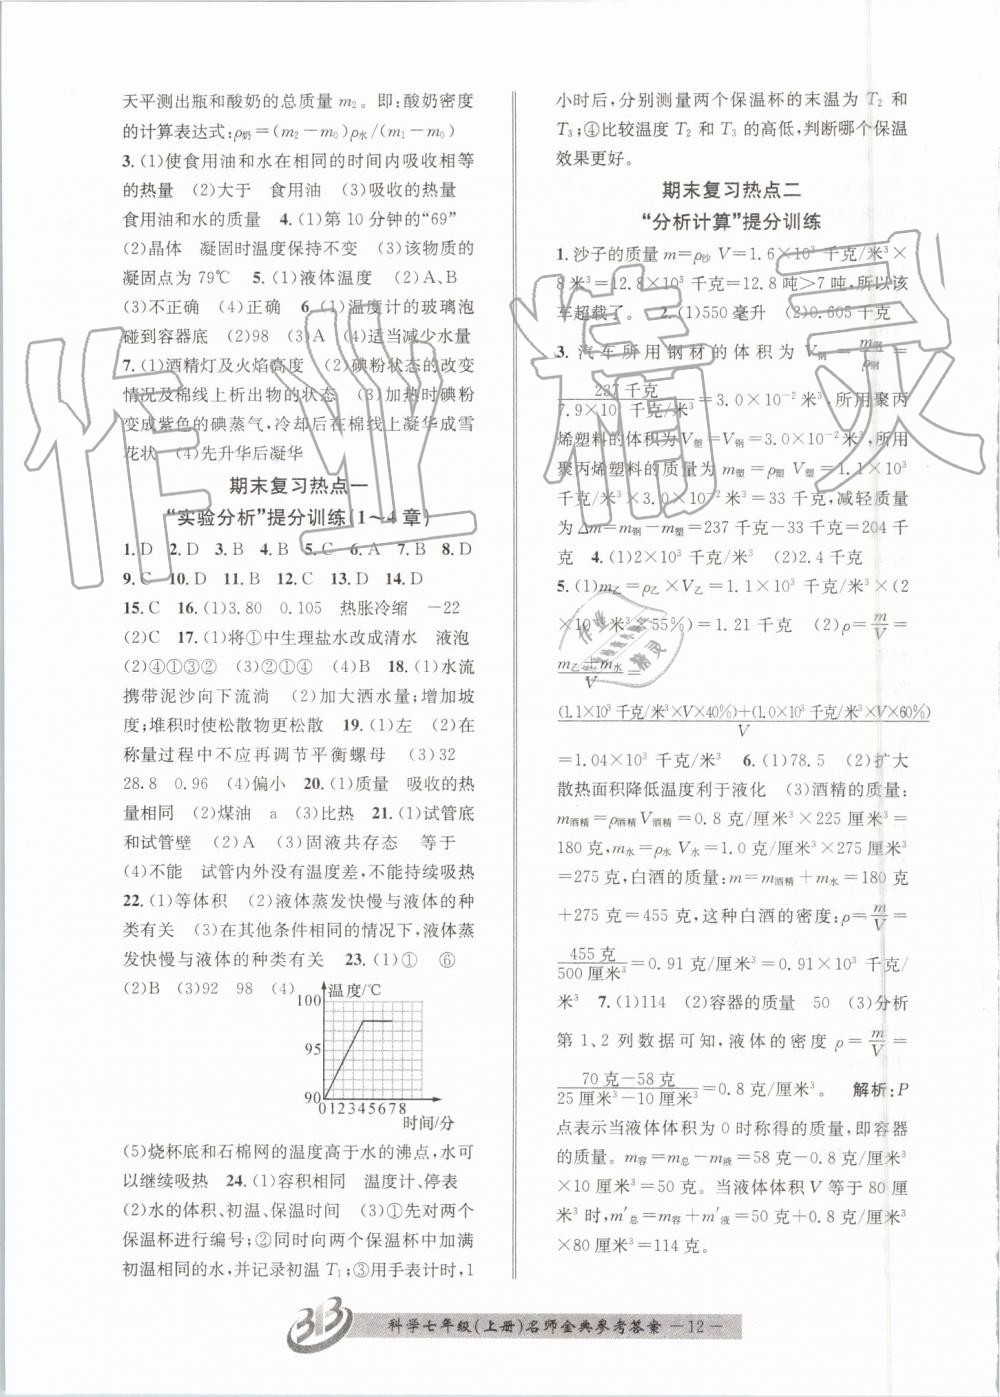 天平测出瓶和酸奶的总质量 m₂。即:酸奶密度
的计算表达式:ρ奶=(m₂-m₀)ρ水/(m₁-m₀)
3.(1)使食用油和水在相同的时间内吸收相等
的热量 (2)大于 食用油 (3)吸收的热量
食用油和水的质量 4.(1)第10分钟的“69”
(2)晶体 凝固时温度保持不变 (3)该物质的
凝固点为79℃ 5.(1)液体温度 (2)A、B
(3)不正确 (4)正确 6.(1)温度计的玻璃泡
碰到容器底 (2)98 (3)A (4)适当减少水量
7.(1)酒精灯及火焰高度 (2)碘粉状态的改变
情况及棉线上析出物的状态 (3)加热时碘粉
变成紫色的碘蒸气,冷却后在棉线上凝华成雪
花状 (4)先升华后凝华
期末复习热点一
“实验分析”提分训练(1~4章)
1.D 2.D 3.B 4.B 5.C 6.A 7.B 8.D
9.C 10.D 11.B 12.C 13.D 14.D
15.C 16.(1)3.80 0.105 热胀冷缩 -22
(2)C 17.(1)将①中生理盐水改成清水 液泡
(2)④①③② (3)②①④ (4)B 18.(1)水流
携带泥沙向下流淌 (2)加大洒水量;增加坡
度;堆积时使松散物更松散 19.(1)左 (2)在
称量过程中不应再调节平衡螺母 (3)32
28.8 0.96 (4)偏小 20.(1)质量 吸收的热
量相同 (2)煤油 a (3)比热 21.(1)试管底
和试管壁 (2)A (3)固液共存态 等于
(4)不能 试管内外没有温度差,不能持续吸热
22.(1)等体积 (2)液体蒸发快慢与液体的种
类有关 (3)在其他条件相同的情况下,液体蒸
发快慢与液体的种类有关 23.(1)① ⑥
(2)B (3)92 98 (4)
温度/℃
100
95
90
012345678
时间/分
(5)烧杯底和石棉网的温度高于水的沸点,水可
以继续吸热 24.(1)容积相同 温度计、停表
(2)水的体积、初温、保温时间 (3)①先对两个
保温杯进行编号;②同时向两个保温杯中加满
初温相同的水,并记录初温 T₁;③用手表计时,1
小时后,分别测量两个保温杯的末温为 T₂ 和
T₃;④比较温度 T₂ 和 T₃ 的高低,判断哪个保温
效果更好。
期末复习热点二
“分析计算”提分训练
1.沙子的质量 m=ρ沙V=1.6×10³千克/米³×
8米³=12.8×10³千克=12.8吨>7吨,所以该
车超载了。 2.(1)550毫升 (2)0.605千克
3.汽车所用钢材的体积为 V钢=m钢/ρ钢=
237千克/7.9×10³千克/米³=3.0×10⁻²米³,所用聚丙
烯塑料的体积为V塑=V钢=3.0×10⁻²米³,所用
聚丙烯塑料的质量为 m塑=ρ塑V塑=1.1×10³
千克/米³×3.0×10⁻²米³=33千克,减轻质量
为△m=m钢-m塑=237千克-33千克=204千
克 4.(1)2×10³千克/米³ (2)2.4千克
5.(1)m乙=ρ乙×V乙=1.1×10³千克/米³×(2
×10⁻³米³×55%)=1.21千克 (2)ρ=m/V=
m乙+m水/V=
(1.1×10³千克/米³×V×40%)+(1.0×10³千克/米³×V×60%)/V
=1.04×10³千克/米³ 6.(1)78.5 (2)扩大
散热面积降低温度利于液化 (3)酒精的质量:
m酒精=ρ酒精V酒精=0.8克/厘米³×225厘米³=
180克,m水=ρ水V水=1.0克/厘米³×275厘米³
=275克,白酒的质量:m=m酒精+m水=180克
+275克=455克,这种白酒的密度:ρ=m/V=
455克/500厘米³=0.91克/厘米³=0.91×10³千克/
米³ 7.(1)114 (2)容器的质量 50 (3)分析
第1、2列数据可知,液体的密度 ρ=m/V=
70克-58克/25厘米³-10厘米³=0.8克/厘米³。 解析:P
点表示当液体体积为0时称得的质量,即容器
的质量。m容=m总-m液=58克-0.8克/厘米³
×10厘米³=50克。当液体体积V等于80厘
米³时,m′总=m容+m′液=50克+0.8克/厘米³
×80厘米³=114克。
科学七年级(上册)名师金典参考答案 -12-
作业精灵
作业精灵